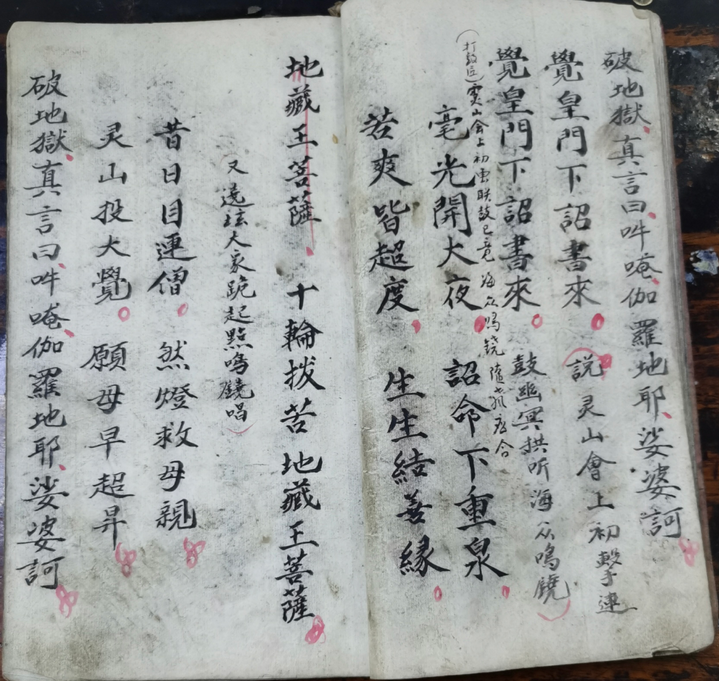 破地獄真言曰吽唵伽羅地耶娑婆訶
覺皇門下詔書來 説灵山會上初擊連
鼓幽冥拱听海众鸣鐃
覺皇門下詔書來
灵山會上初 联鼓已竟 海众鸣铙随 和合
毫光開大夜 詔命下重泉
苦爽皆超度 生生結善緣
地藏王菩薩 十輪拔苦地藏王菩薩
又遶 大家跪起 鳴鐃唱
昔日目連僧 然燈救母親
灵山投大覺 願母早超昇
破地獄真言曰吽唵伽羅地耶娑婆訶